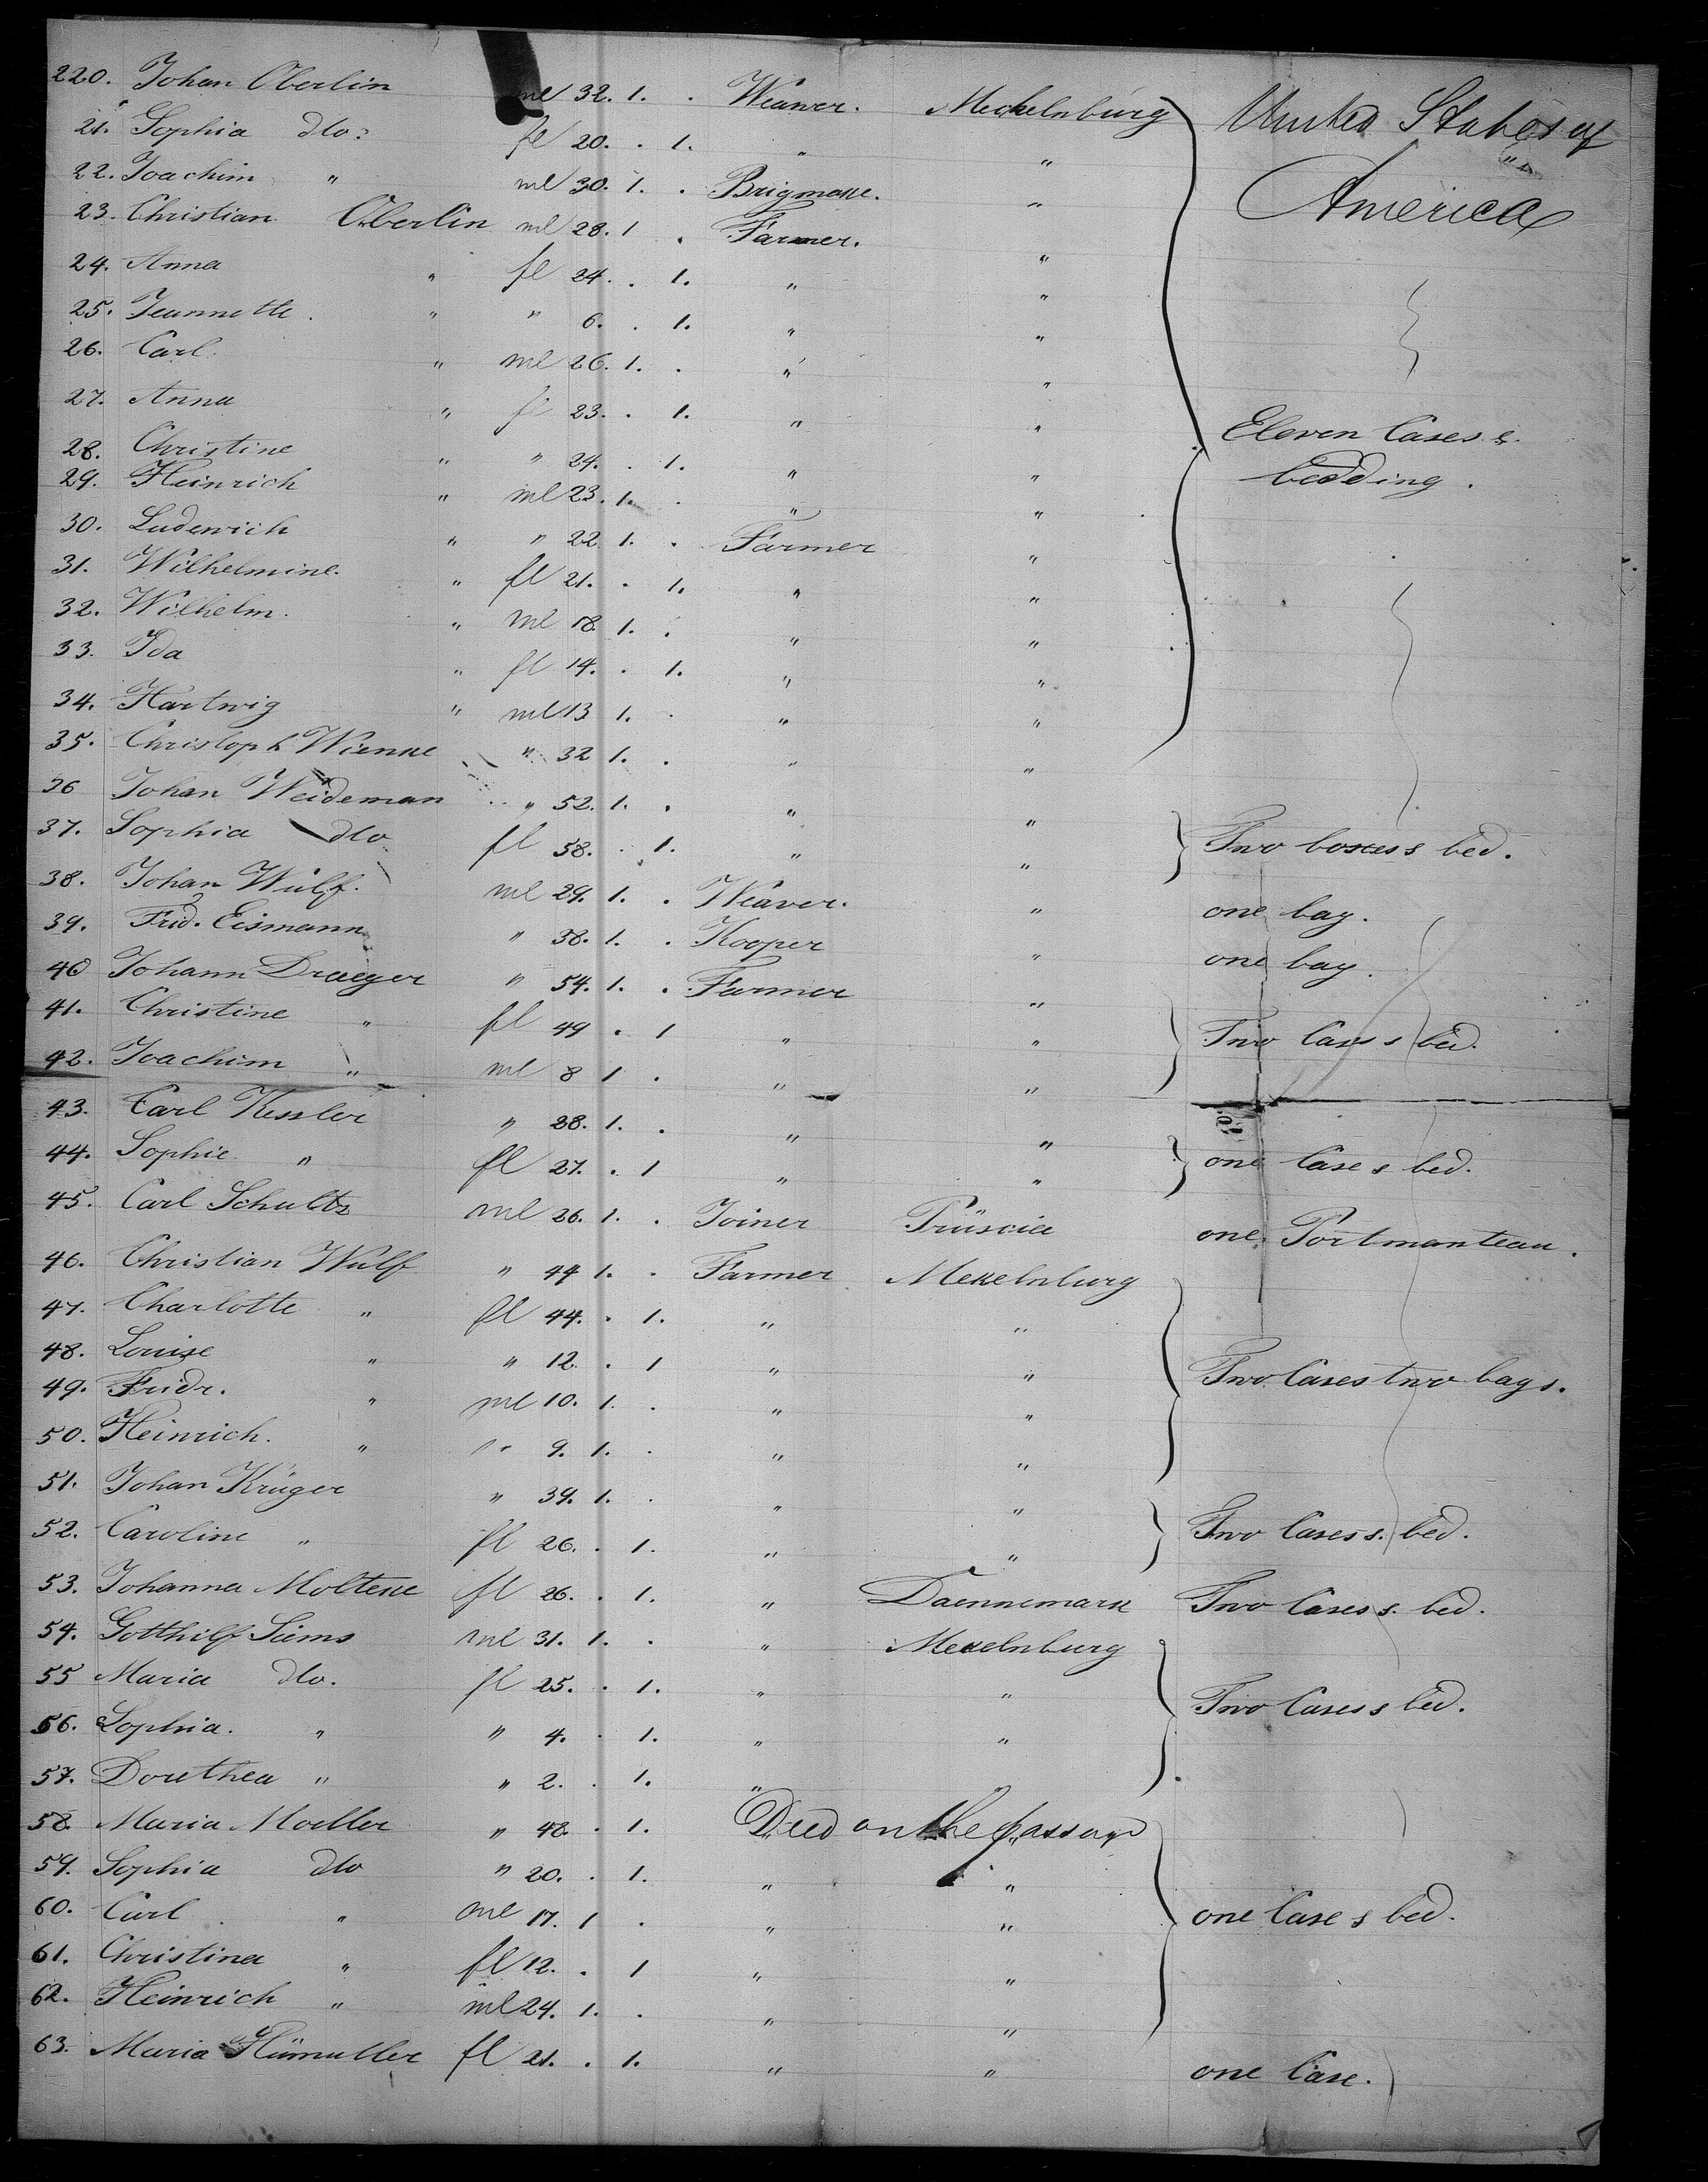 220. Johan Oberlin ml 32. 1. . Weawer. Meckelnburg United States of
21. Sophia dto: fl 20. . 1. " "
America
22. Joachim " ml 30. 1. . Brigmake. "
23. Christian Oberlin ml 28. 1 . Farmer. "
24. Anna " fl 24. . 1. " "
25. Jeannette " " 6. . 1. " "
26. Carl " ml 26. 1. . " "
27. Anna " fl 23. . 1. " " Eleven Cases &
28. Christine " " 24. . 1. " " bedding.
29. Heinrich " ml 23. 1. . " "
30. Ludewich " " 22 1. . Farmer "
31. Wilhelmine. " fl 21. . 1. " "
32. Wilhelm. " ml 18. 1. . " "
33. Ida " fl 14. . 1. " "
34. Hartwig " ml 13 1. . " "
35. Christoph Wienke " 32 1. . " "
36 Johan Weideman " 52. 1. . " "
37. Sophia dto. fl 58. . 1. " " Two boxes s bed.
38. Johan Wulf. ml 29. 1. . Weaver. " one bag.
39. Frid. Eismann " 38. 1. . Kooper " one bag.
40 Johann Draeger " 54. 1. . Farmer "
41. Christine " fl 49 . 1 " " Two Cases s bed.
42. Joachim " ml 8 1 . " "
43. Carl Kessler " 28. 1. . " "
44. Sophie " fl 27. . 1 " " one Case s bed.
45. Carl Schultz ml 26. 1. . Joiner Prüscia one Portmanteau.
46. Christian Wulf " 44 1. . Farmer Mekelnburg
47. Charlotte " fl 44. . 1. " "
48. Louise " " 12. . 1 " " Two Cases two bags.
49. Fridr. " ml 10. 1. . " "
50. Heinrich. " " 9. 1. . " "
51. Johan Krüger " 39. 1. . " "
52. Caroline " fl 26. . 1. " " Two Cases s. bed.
53. Johanna Molteke fl 26. . 1. " Daennemark Two Cases s. bed.
54. Gotthilf Siems ml 31. 1. . " Mekelnburg
55 Maria dto. fl 25. . 1. " " Two Cases s bed.
56. Sophia. " " 4. . 1. " "
57. Dorethea " " 2. . 1. " "
58. Maria Moeller " 48. . 1. Died on the passage
59. Sophia dto " 20. . 1. " "
60. Carl " ml 17. 1 . " " one Case s bed.
61. Christina " fl 12. . 1 " "
62. Heinrich " ml 24. 1. . " "
63. Maria fl 21. . 1. " " one Case.